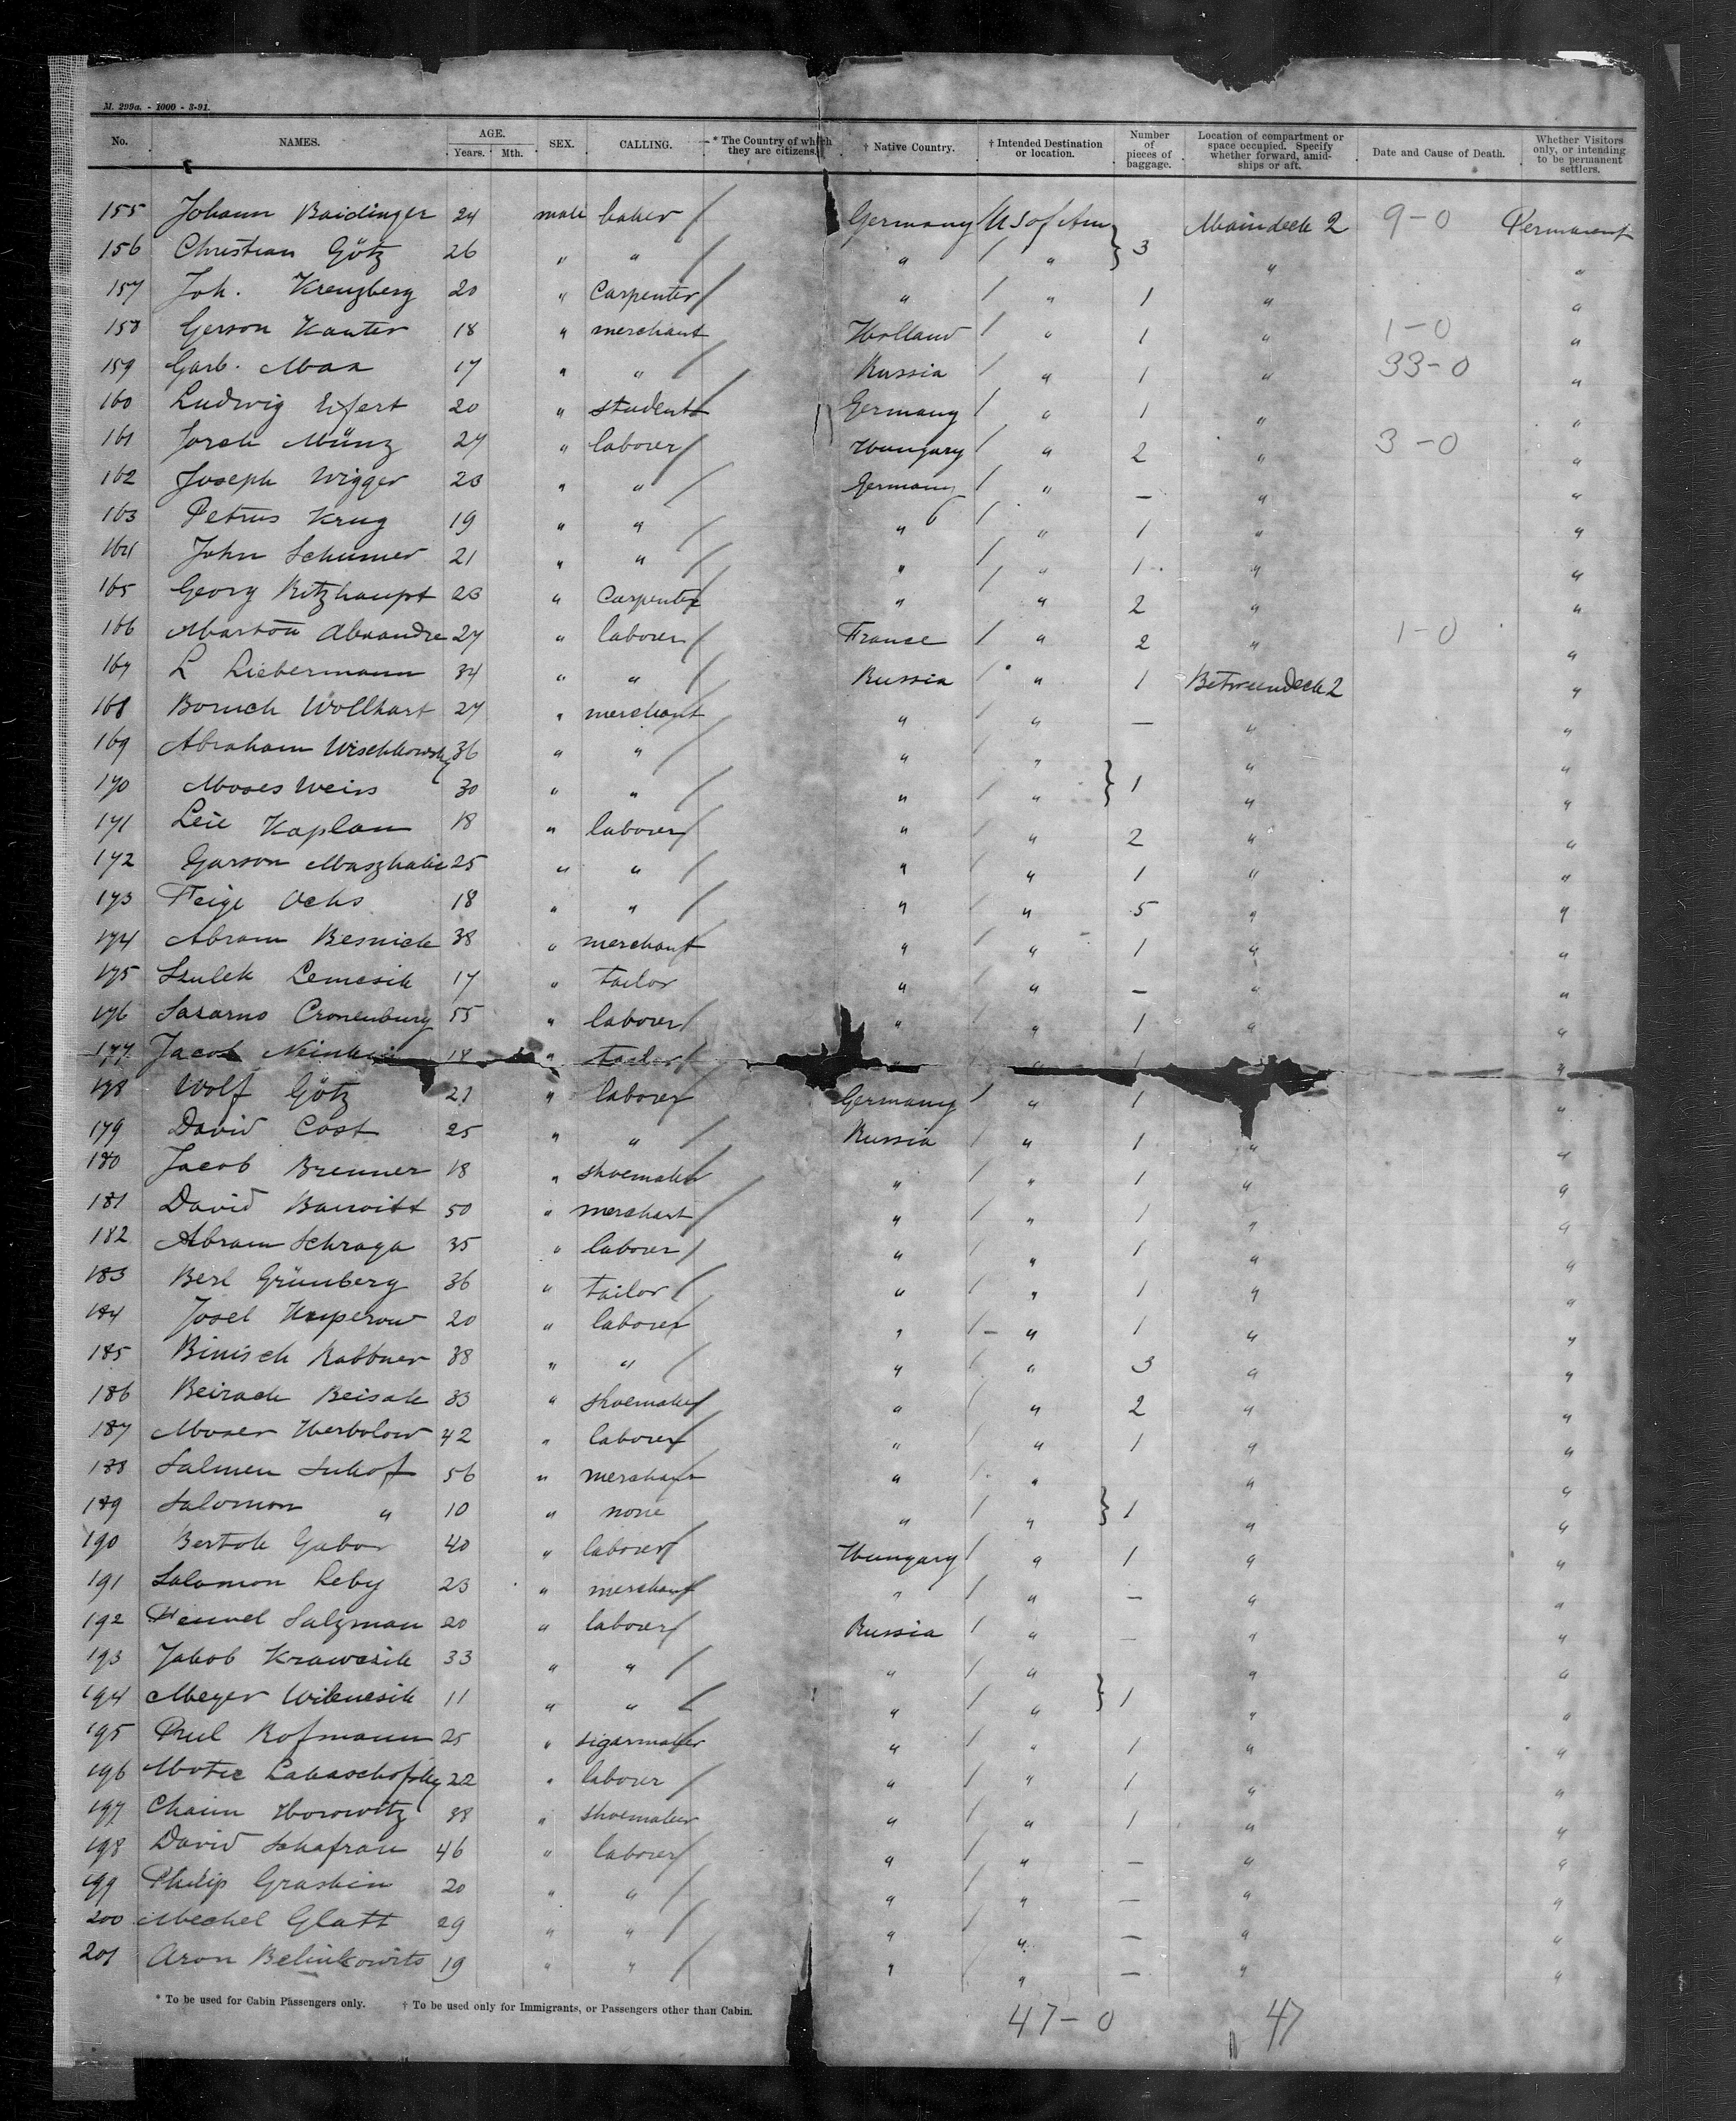 M. 299a. - 1000 - 3-91.
No. NAMES. AGE. Years. Mth. SEX. CALLING. * The Country of which they are citizens. † Native Country. † Intended Destination or location. Number of pieces of baggage. Location of compartment or space occupied. Specify whether forward, amidships or aft. Date and Cause of Death. Whether Visitors only, or intending to be permanent settlers.
155 Johann Baidinger 24 male baker / Germany U S of Am Maindeck 2 9-0 Permanent
156 Christian Götz 26 " " / " / " } 3 " "
157 Joh. Kreuzberg 20 " Carpenter / " / " 1 " "
158 Gerson Kanter 18 " merchant Holland / " 1 " 1-0 "
159 Garb. Max 17 " " / Russia / " 1 " 33-0 "
160 Ludwig Eifert 20 " student / Germany / " 1 " "
161 Münz 27 " laborer / Hungary / " 2 " 3-0 "
162 Joseph Wigger 23 " " / Germany / " — " "
163 Petrus Krug 19 " " / " / " 1 " "
164 John Schumer 21 " " / " / " 1 " "
165 Georg Ritzhaupt 23 " Carpenter " / " 2 " "
166 Alexandre 27 " laborer / France / " 2 " 1-0 "
167 L Liebermann 34 " " / Russia / " 1 Betweendeck 2 "
168 Boruch Wollhart 27 " merchant " / " — " "
169 Abraham Wischkowsky 36 " " / " / " " "
170 Moses Weiss 30 " " / " / " } 1 " "
171 Leie Kaplan 18 " laborer / " / " 2 " "
172 Garson 25 " " / " / " 1 " "
173 Feige Ochs 18 " " / " " 5 " "
174 Abram Besnick 38 " merchant " / " 1 " "
175 Lemesik 17 " tailor " / " — " "
176 Cronenburg 55 " laborer / " / " 1 " "
177 Jacob 18 " tailor / " " 1 "
178 Wolf Götz 21 " laborer Germany / " 1 "
179 David Cost 25 " " / Russia / " 1 " "
180 Jacob Brenner 18 " shoemaker " / " 1 " "
181 David 50 " merchant / " / " 1 " "
182 Abram Schraga 35 " laborer / " / " 1 " "
183 Berl Grünberg 36 " tailor / " / " 1 " "
184 Josel 20 " laborer " / " 1 " "
185 Binisch Rabbner 38 " " / " / " 3 " "
186 Beirach Beisak 33 " shoemaker " / " 2 " "
187 Moses Herbolow 42 " laborer " / " 1 " "
188 Salmen Sukof 56 " merchant " / " " "
189 Salomon " 10 " none " / " } 1 " "
190 Gabor 40 " laborer Hungary / " 1 " "
191 Salomon Leby 23 " merchant " / " — " "
192 Salzman 20 " laborer / Russia / " — " "
193 Jakob Krawcsik 33 " " / " / " " "
194 Meyer Wilenesik 11 " " / " / " } 1 " "
195 Kofmann 25 " sigarmaker " / " 1 " "
196 Motie 22 " laborer / " / " 1 " "
197 Chaim Horowitz 38 " shoemaker " / " 1 " "
198 David Schafran 46 " laborer " / " — " "
199 Philip Graskin 20 " " / " / " — " "
200 Mechel Glatt 29 " " / " / " — " "
201 Aron Belinkowits 19 " " / " / " — " "
* To be used for Cabin Passengers only. † To be used only for Immigrants, or Passengers other than Cabin.
47-0 47